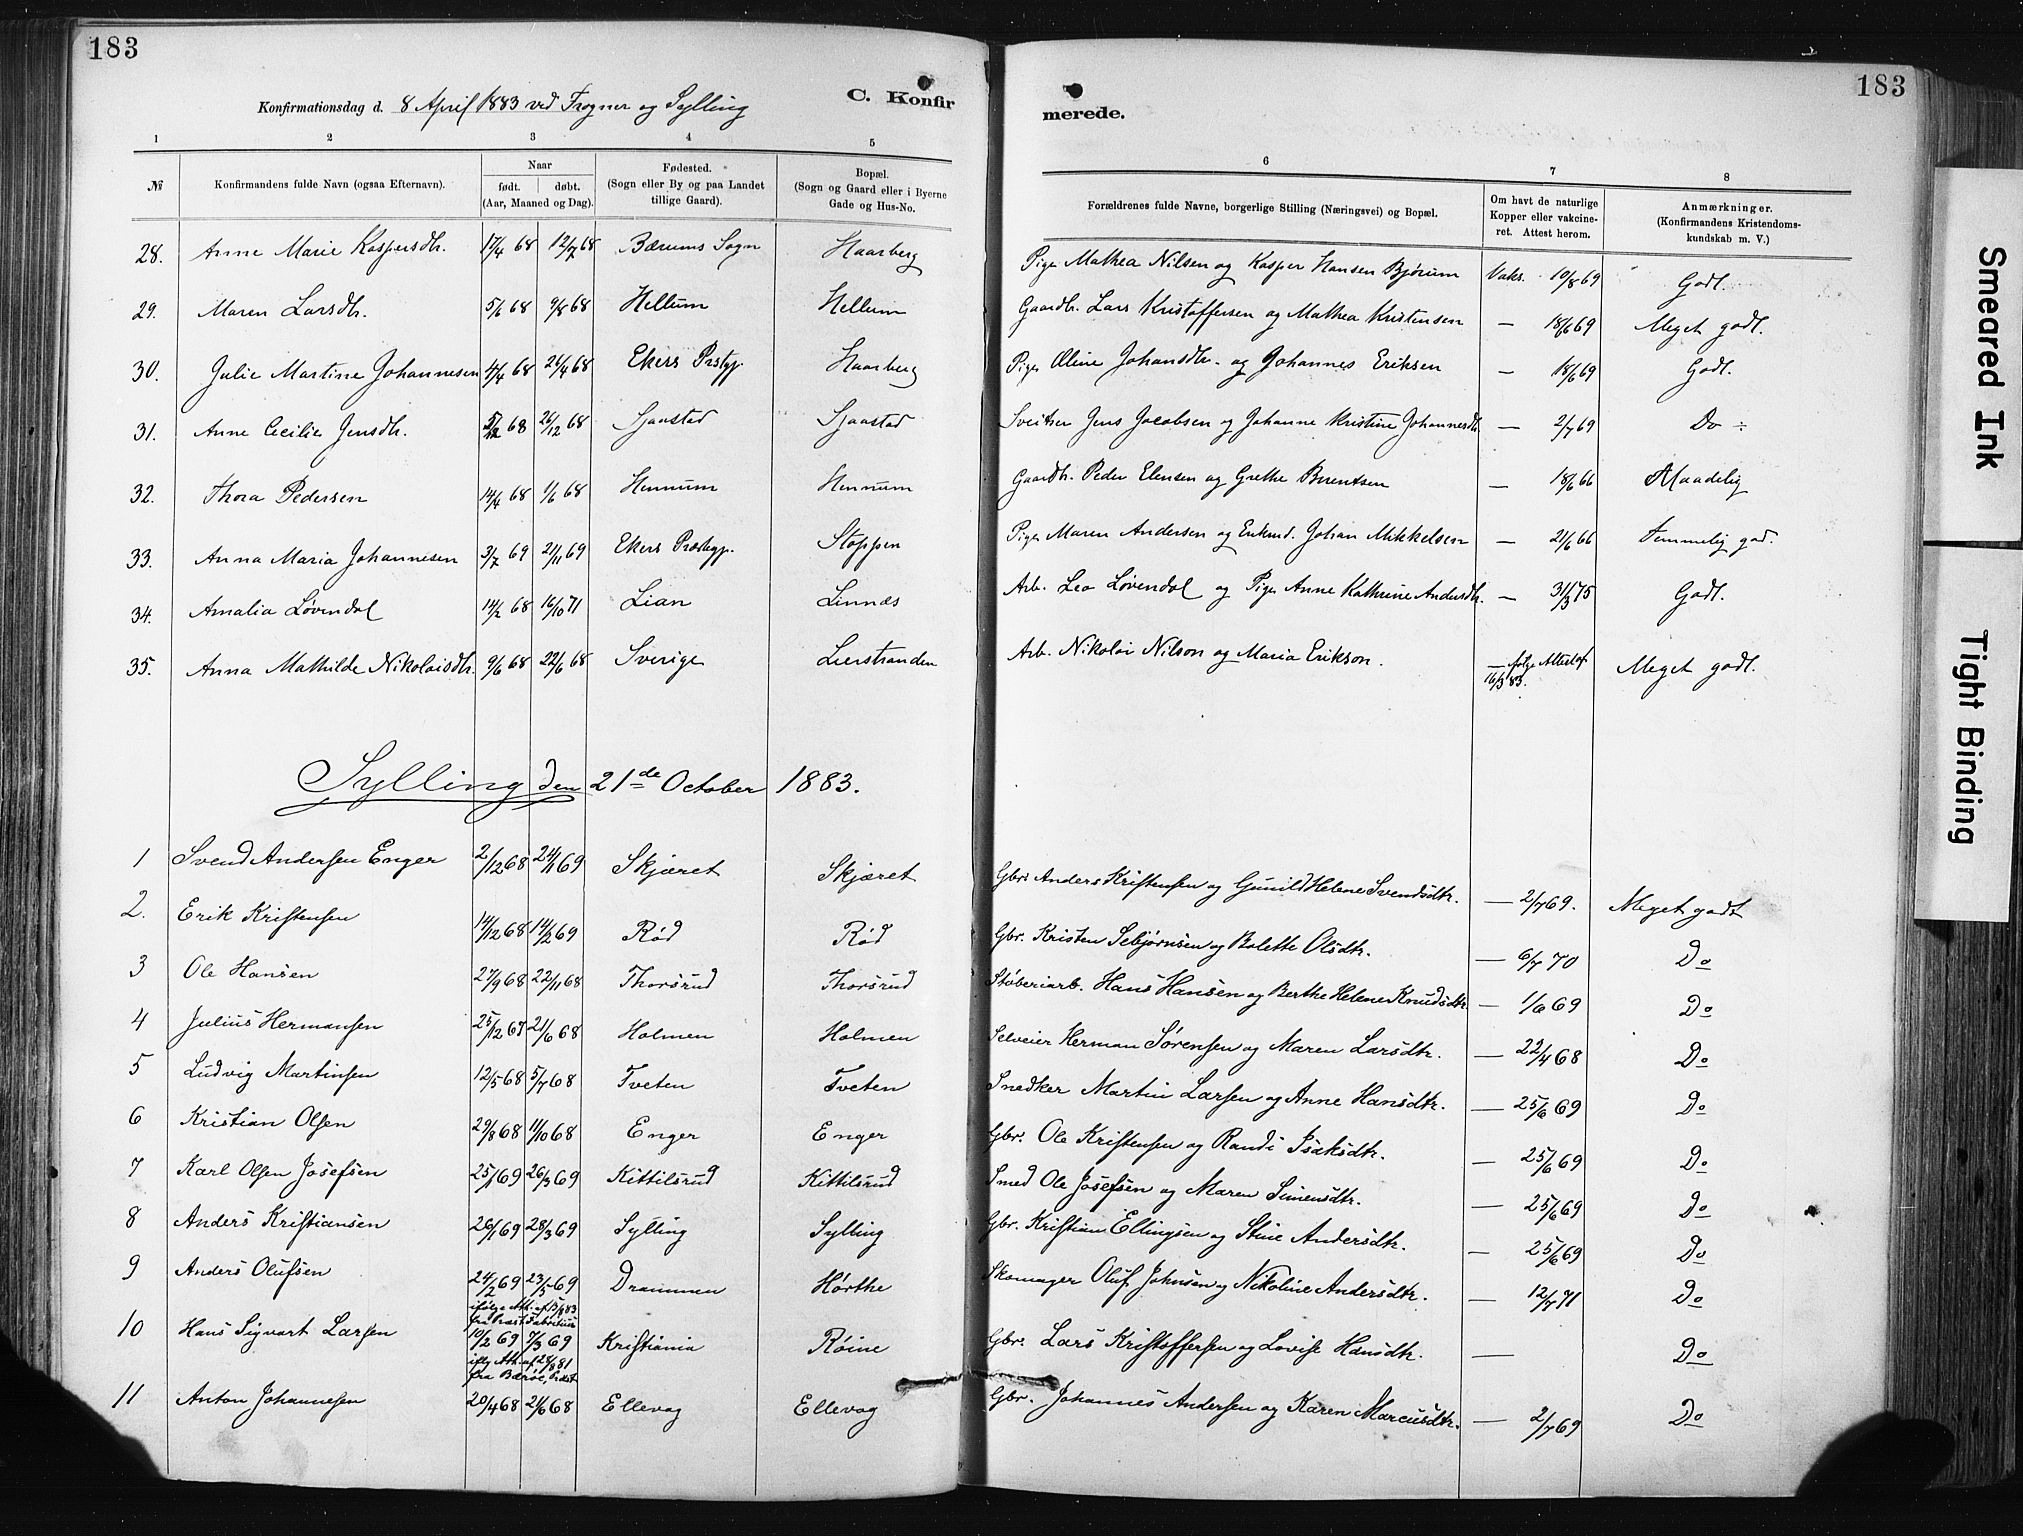 183
Konfirmationsdag d. 8 April 1883 ved Frogner og Sylling
C. Konfirmerede.
183
1 2 3 4 5 6 7 8
№ Konfirmandens fulde Navn (ogsaa Efternavn). Naar født. døbt. (Aar, Maaned og Dag). Fødested. (Sogn eller By og paa Landet tillige Gaard). Bopæl. (Sogn og Gaard eller i Byerne Gade og Hus-No. Forældrenes fulde Navne, borgerlige Stilling (Næringsvei) og Bopæl. Om havt de naturlige Kopper eller vakcineret. Attest herom. Anmærkninger. (Konfirmandens Kristendomskundskab m. V.)
28. Anne Marie Kaspersdtr. 17/4 68 12/7 68 Bærums Sogn Haarberg Pige Mathea Nilsen og Kasper Hansen Bjørum Vaks. 10/8 69 Godt.
29. Maren Larsdtr. 5/6 68 9/8 68 Hellum Hellum Gaardbr. Lars Kristoffersen og Mathea Kristensen — 18/6 69 Meget godt.
30. Julie Martine Johannesen 4/4 68 26/4 68 Ekers Prstgj. Haarberg Pige Oline Johansdtr. og Johannes Eriksen — 18/6 69 Godt.
31. Anne Cecilie Jensdtr. 5/12 68 26/12 68 Sjaastad Sjaastad Sveitser Jens Jacobsen og Johanne Kristine Johannesdtr. — 2/7 69 Do ÷
32. Thora Pedersen 14/4 68 1/6 68 Hennum Hennum Gaardbr. Peder Elensen og Grethe Berentsen — 18/6 66 Maadelig
33. Anna Maria Johannesen 3/7 69 21/11 69 Ekers Præstegj. Stoppen Pige Maren Andersen og Enkemd. Johan Mikkelsen — 21/6 66 Temmelig god.
34. Amalia Løvendal 14/2 68 16/10 71 Lian Linnæs Arb. Leo Løvendal og Pige Anne Kathrine Andersdtr. — 31/3 75 Godt.
35. Anna Mathilde Nikolaisdtr. 9/6 68 22/6 68 Sverige Lierstranden Arb. Nikolai Nilson og Maria Erikson. — følge Attest af 16/3 83. Meget godt.
Sylling den 21de October 1883.
1 Svend Andersen Enger 2/12 68 24/1 69 Skjæret Skjæret Gbr. Anders Kristensen og Gunild Helene Svendsdtr. — 2/7 69. Meget godt
2. Erik Kristensen 14/12 68 14/2 69 Rød Rød Gbr. Kristen Sebjørnsen og Bolette Olsdtr. — 6/7 70 Do
3 Ole Hansen 27/9 68 22/11 68 Thorsrud Thorsrud Støberiarb. Hans Hansen og Berthe Helene Knudsdtr. — 1/6 69 Do
4 Julius Hermansen 25/12 67 21/6 68 Holmen Holmen Selveier Herman Sørensen og Maren Larsdtr. — 22/4 68 Do
5 Ludvig Martinsen 12/5 68 5/7 68 Tveten Tveten Snedker Martin Larsen og Anne Hansdtr. — 25/6 69 Do
6 Kristian Olsen 29/8 68 11/10 68 Enger Enger Gbr. Ole Kristensen og Randi Isaksdtr. — 25/6 69 Do
7 Karl Olsen Josefsen 25/1 69 26/3 69 Kittilsrud Kittilsrud Smed Ole Josefsen og Maren Simensdtr. — 25/6 69 Do
8 Anders Kristiansen 26/1 69 28/3 69 Sylling Sylling Gbr. Kristian Ellingsen og Stine Andersdtr. — 25/6 69 Do
9 Anders Olufsen 24/2 69 23/5 69 Drammen Hørthe Skomager Oluf Johnsen og Nikoline Andersdtr. — 12/7 71 Do
ifølge Att. af 15/8 83
fra Præst Fabritius
10 Hans Sigvart Larsen 10/2 69 7/3 69 Kristiania Røine Gbr. Lars Kristoffersen og Lovise Hansdtr. — Do
ifølg Att. af 28/8 81
fra Præst
11 Anton Johannesen 20/4 68 21/6 68 Ellevog Ellevog Gbr. Johannes Andersen og Karen Marcusdtr. — 2/7 69 Do
Smeared Ink
Tight Binding